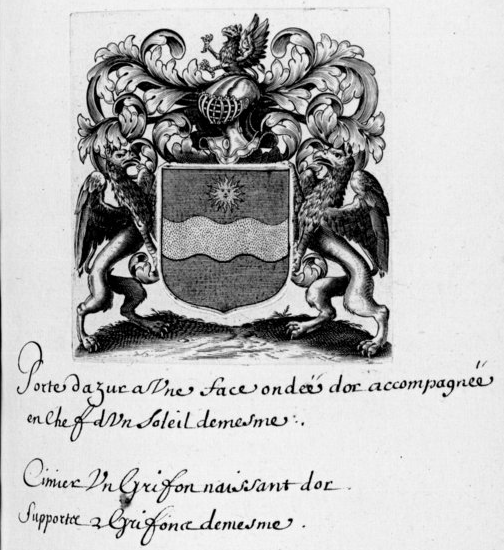 Porte dazur a Vne face ondeé dor accompagnée
en Chef d'Vn Soleil demesme .
Cimier Vn Grifon naissant dor .
Supportz 2 Grifons demesme .